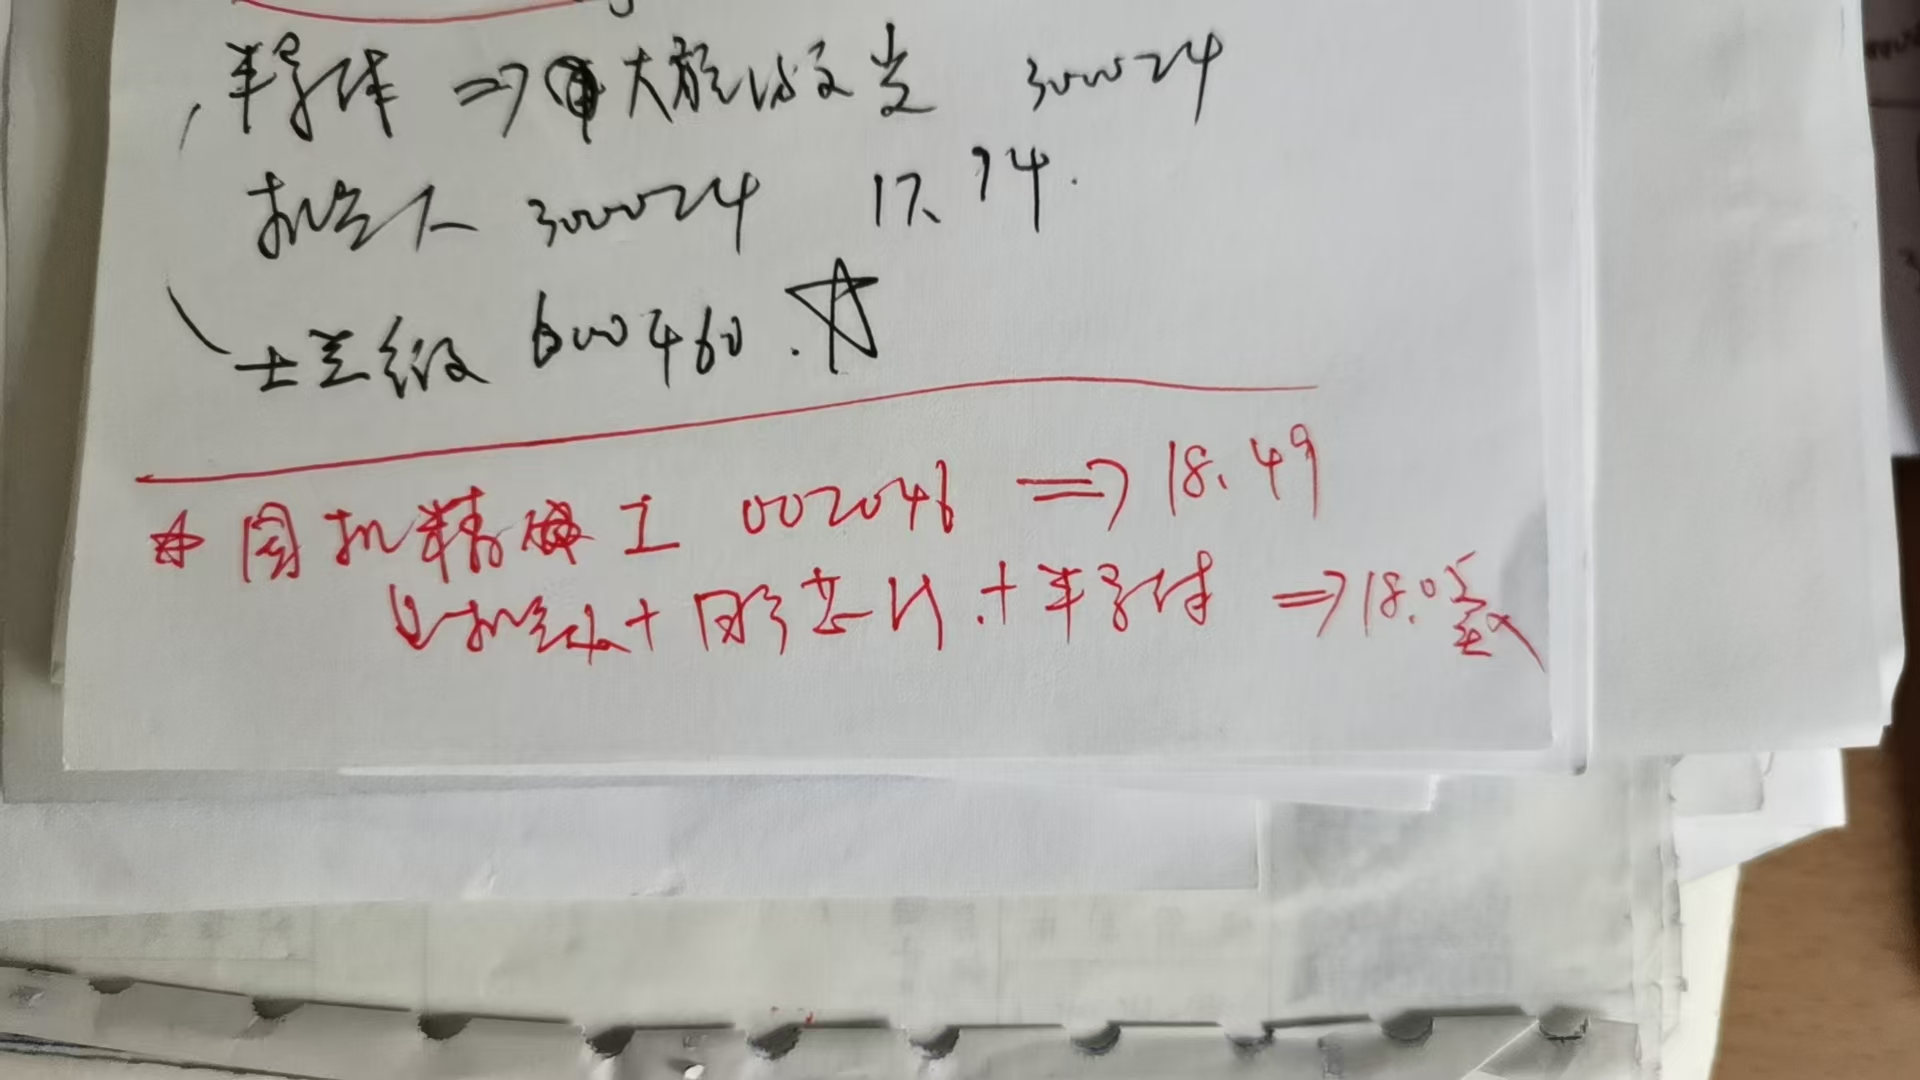 半导体 ⇒ 大族激光 300024
机器人 300024 17.74.
士兰微 600460. ☆
☆ 国机精工 002046 ⇒ 18.49
机器人 + 国产芯片 + 半导体 ⇒ 18.05